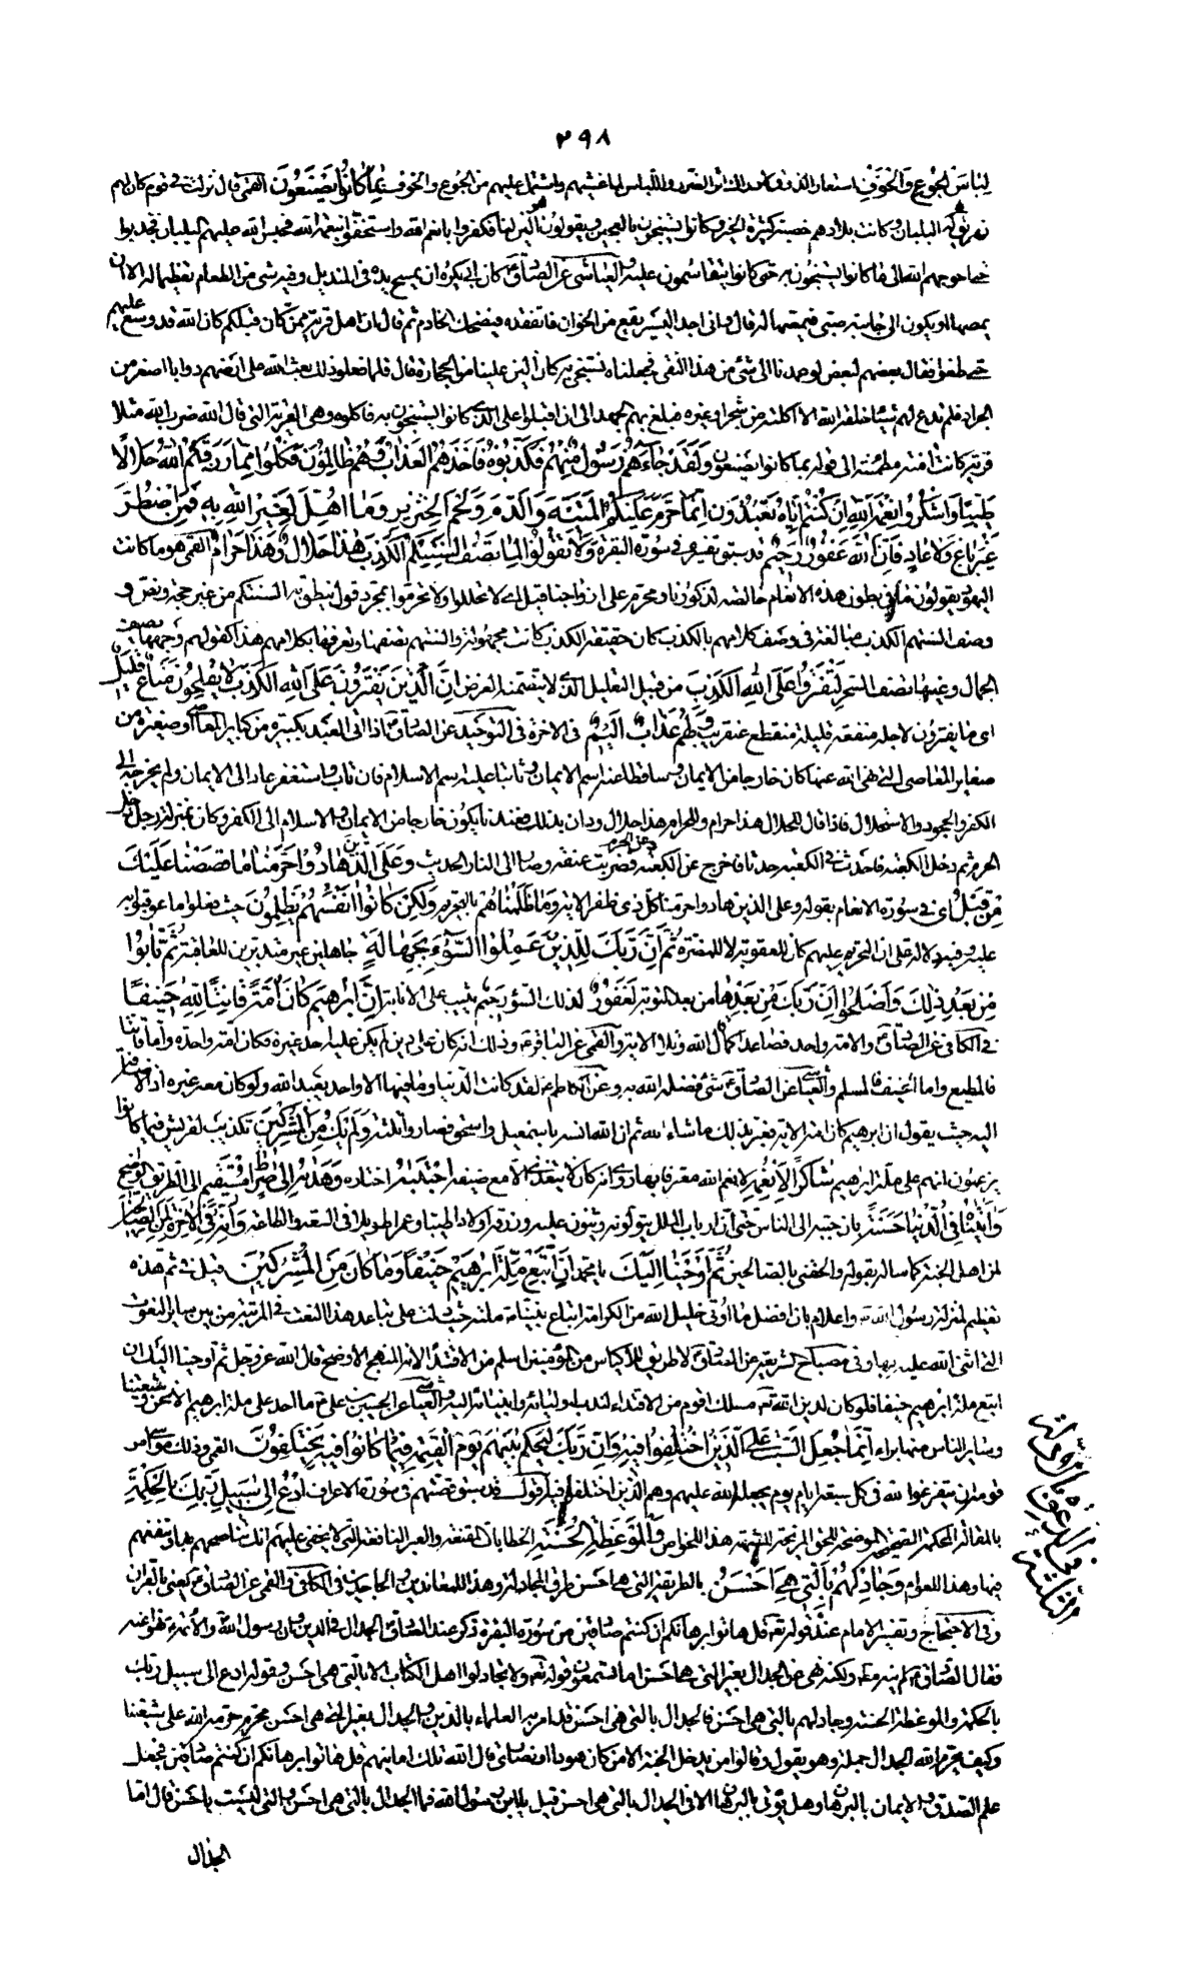 ٢٩٨
لِبَاسَ الْجُوعِ وَالْخَوْفِ استعار الذوق لادراك اثر الضرر واللباس لما غشيهم واشتمل عليهم من الجوع والخوف بِمَا كَانُوا يَصْنَعُونَ القمى قال نزلت فى قوم كان لهم
نهر يقال له البليان وكانت بلادهم خصبة كثيرة الخير وكانوا يستنجون بالعجين ويقولون هو الين لنا فكفروا بانعم الله واستخفوا بنعمة الله فحبس الله عليهم البليان فجدبوا
حتى احوجهم الله الى ما كانوا يستنجون به حتى كانوا يتقاسمون عليه والعياشى عن الصادق كان ابى يكره ان يمسح يده فى المنديل وفيه شئ من الطعام تعظيما له الا ان
يمصها او يكون الى جانبه صبى فيمصها له قال وانى اجد اليسير يقع من الخوان فاتفقده فيضحك الخادم ثم قال ان اهل قرية ممن كان قبلكم كان الله قد وسع عليهم
حتى طغوا فقال بعضهم لبعض لو عمدنا الى شئ من هذا النقى فجعلناه نستنجى به كان الين علينا من الحجارة قال فلما فعلوا ذلك بعث الله على ارضهم دوابا اصغر من
الجراد فلم تدع لهم شيئا خلقه الله الا اكلته من شجر او غيره فبلغ بهم الجهد الى ان اقبلوا على الذى كانوا يستنجون به فاكلوه وهى القرية التى قال الله ضرب الله مثلا
قرية كانت امنة مطمئنة الى قوله بما كانوا يصنعون وَلَقَدْ جَاءَهُمْ رَسُولٌ مِنْهُمْ فَكَذَّبُوهُ فَاَخَذَهُمُ الْعَذَابُ وَهُمْ ظَالِمُونَ فَكُلُوا مِمَّا رَزَقَكُمُ اللهُ حَلَالًا
طَيِّبًا وَاشْكُرُوا نِعْمَةَ اللهِ اِنْ كُنْتُمْ اِيَّاهُ تَعْبُدُونَ اِنَّمَا حَرَّمَ عَلَيْكُمُ الْمَيْتَةَ وَالدَّمَ وَلَحْمَ الْخِنْزِيرِ وَمَا اُهِلَّ لِغَيْرِ اللهِ بِهِ فَمَنِ اضْطُرَّ
غَيْرَ بَاغٍ وَلَا عَادٍ فَاِنَّ اللهَ غَفُورٌ رَحِيمٌ قد سبق تفسيره فى سورة البقرة وَلَا تَقُولُوا لِمَا تَصِفُ اَلْسِنَتُكُمُ الْكَذِبَ هٰذَا حَلَالٌ وَهٰذَا حَرَامٌ القمى هو ما كانت
اليهود يقولون ما فى بطون هذه الانعام خالصة لذكورنا ومحرم على ازواجنا قيل اى لا تحللوا ولا تحرموا بمجرد قول ينطق به السنتكم من غير حجة ونص و
وصف السنتهم الكذب مبالغة فى وصف كلامهم بالكذب كان حقيقة الكذب كانت مجهولة والسنتهم تصفها وتعرفها بكلامهم هذا كقولهم وجهها يصف
الجمال وعينها تصف السحر لِتَفْتَرُوا عَلَى اللهِ الْكَذِبَ من قبيل التعليل الذى لا يتضمن الغرض اِنَّ الَّذِينَ يَفْتَرُونَ عَلَى اللهِ الْكَذِبَ لَا يُفْلِحُونَ مَتَاعٌ قَلِيلٌ
اى ما يفترون لاجله منفعة قليلة منقطع عن قريب وَلَهُمْ عَذَابٌ اَلِيمٌ فى الاخرة فى التوحيد عن الصادق اذا اتى العبد بكبيرة من كبائر المعاصى او صغيرة من
صغاير المعاصى التى نهى الله عنها كان خارجا من الايمان وساقطا عنه اسم الايمان وثابتا عليه اسم الاسلام فان تاب واستغفر عاد الى الايمان ولم يخرجه الى
الكفر والجحود والاستحلال فاذا قال للحلال هذا حرام وللحرام هذا حلال ودان بذلك فعندها يكون خارجا من الايمان والاسلام الى الكفر وكان بمنزلة رجل دخل
الحرم ثم دخل الكعبة فاحدث فى الكعبة حدثا فاخرج عن الكعبة وعن الحرم فضربت عنقه وصار الى النار الحديث وَعَلَى الَّذِينَ هَادُوا حَرَّمْنَا مَا قَصَصْنَا عَلَيْكَ
مِنْ قَبْلُ اى فى سورة الانعام بقوله وعلى الذين هادوا حرمنا كل ذى ظفر الاية وَمَا ظَلَمْنَاهُمْ بالتحريم وَلٰكِنْ كَانُوا اَنْفُسَهُمْ يَظْلِمُونَ حيث فعلوا ما عوقبوا به
عليه وفيه دلالة على ان التحريم عليهم كان للعقوبة لا للمضرة ثُمَّ اِنَّ رَبَّكَ لِلَّذِينَ عَمِلُوا السُّوءَ بِجَهَالَةٍ جاهلين غير متدبرين للعاقبة ثُمَّ تَابُوا
مِنْ بَعْدِ ذٰلِكَ وَاَصْلَحُوا اِنَّ رَبَّكَ مِنْ بَعْدِهَا من بعد التوبة لَغَفُورٌ لذلك السوء رَحِيمٌ يثيب على الانابة اِنَّ اِبْرٰهِيمَ كَانَ اُمَّةً قَانِتًا لِلّٰهِ حَنِيفًا
فى الكافى عن الصادق والامة واحد فصاعدا كما قال الله وتلا الاية والقمى عن الباقر وذلك انه كان على دين لم يكن عليه احد غيره فكان امة واحدة واما قانتا
فالمطيع واما الحنيف فالمسلم والعياشى عن الصادق شئ فضله الله به وعن الكاظم لقد كانت الدنيا وما فيها الا واحد يعبد الله ولو كان معه غيره اذا لاضافه
اليه حيث يقول ان ابرهيم كان امة الاية فغبر بذلك ما شاء الله ثم ان الله انسه باسمعيل واسحق فصاروا ثلثة وَلَمْ يَكُ مِنَ الْمُشْرِكِينَ تكذيب لقريش فيما كانوا
يزعمون انهم على ملة ابرهيم شَاكِرًا لِاَنْعُمِهِ لانعم الله معترفا بها روى انه كان لا يتغدى الا مع ضيفه اِجْتَبٰيهُ اختاره وَهَدٰيهُ اِلٰى صِرَاطٍ مُسْتَقِيمٍ الى الطريق الواضح
وَاٰتَيْنَاهُ فِى الدُّنْيَا حَسَنَةً بان حببه الى الناس حتى ان ارباب الملل يتولونه ويثنون عليه ورزقه اولادا طيبة وعمرا طويلا فى السعة والطاعة وَاِنَّهُ فِى الْاٰخِرَةِ لَمِنَ الصَّالِحِينَ
لمن اهل الجنة كما ساله بقوله والحقنى بالصالحين ثُمَّ اَوْحَيْنَا اِلَيْكَ يا محمد اَنِ اتَّبِعْ مِلَّةَ اِبْرٰهِيمَ حَنِيفًا وَمَا كَانَ مِنَ الْمُشْرِكِينَ قيل فى ثم هذه
تعظيم لمنزلة رسول الله واعلام بان افضل ما اوتى خليل الله من الكرامة اتباع نبينا ملته حيث دلت على تباعد هذا النعت فى المرتبة من بين ساير النعوت
التى اثنى الله عليه بها وفى مصباح الشريعة عن الصادق لا طريق للاكياس من المؤمنين اسلم من الاقتداء لانه المنهج الاوضح قال الله عز وجل ثم اوحينا اليك ان
اتبع ملة ابرهيم حنيفا فلو كان لدين الله مسلك اقوم من الاقتداء لندب اولياءه وانبياءه اليه والعياشى عن الحسين بن على ما احد على ملة ابرهيم الا نحن وشيعتنا
وساير الناس منها براء اِنَّمَا جُعِلَ السَّبْتُ عَلَى الَّذِينَ اخْتَلَفُوا فِيهِ وَاِنَّ رَبَّكَ لَيَحْكُمُ بَيْنَهُمْ يَوْمَ الْقِيٰمَةِ فِيمَا كَانُوا فِيهِ يَخْتَلِفُونَ القمى وذلك ان موسى امر
قومه ان يتفرغوا لله فى كل سبعة ايام يوم يجعله الله عليهم وهم الذين اختلفوا فيه اقول قد سبق قصتهم فى سورة الاعراف اُدْعُ اِلٰى سَبِيلِ رَبِّكَ بِالْحِكْمَةِ
بالمقالة المحكمة الصحيحة الموضحة للحق المزيحة للشبهة هذا للخواص وَالْمَوْعِظَةِ الْحَسَنَةِ الخطابات المقنعة والعبر النافعة التى لا يخفى عليهم انك تناصحهم بها وتنفعهم
فيها وهذا للعوام وَجَادِلْهُمْ بِالَّتِى هِيَ اَحْسَنُ بالطريقة التى هى احسن طرق المجادلة وهذا للمعاندين والجاحدين فى الكافى والقمى عن الصادق يعنى بالقران
وفى الاحتجاج وتفسير الامام عند قوله تعالى قل هاتوا برهانكم ان كنتم صادقين من سورة البقرة ذكر عند الصادق الجدال فى الدين وان رسول الله والائمة نهوا عنه
فقال الصادق لم ينه عنه ولكنه نهى عن الجدال بغير التى هى احسن اما تسمعون قوله تعالى ولا تجادلوا اهل الكتاب الا بالتى هى احسن وقوله ادع الى سبيل ربك
بالحكمة والموعظة الحسنة وجادلهم بالتى هى احسن فالجدال بالتى هى احسن قد امر به العلماء بالدين والجدال بغير التى هى احسن محرم حرمه الله على شيعتنا
وكيف يحرم الله الجدال جملة وهو يقول وقالوا لن يدخل الجنة الا من كان هودا او نصارى قال الله تلك امانيهم قل هاتوا برهانكم ان كنتم صادقين فجعل
علم الصدق والايمان بالبرهان وهل يؤتى بالبرهان الا فى الجدال بالتى هى احسن قيل يا بن رسول الله فما الجدال بالتى هى احسن والتى ليست باحسن قال اما
الجدال